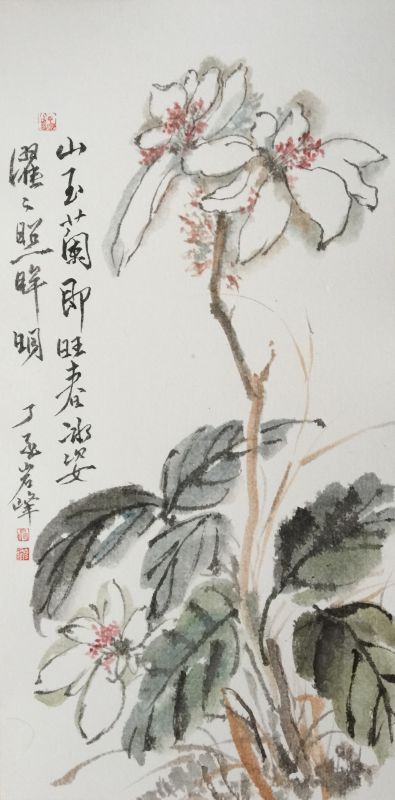 山玉蘭即旺春冰姿
濯〻照眸明 丁亥岩峰